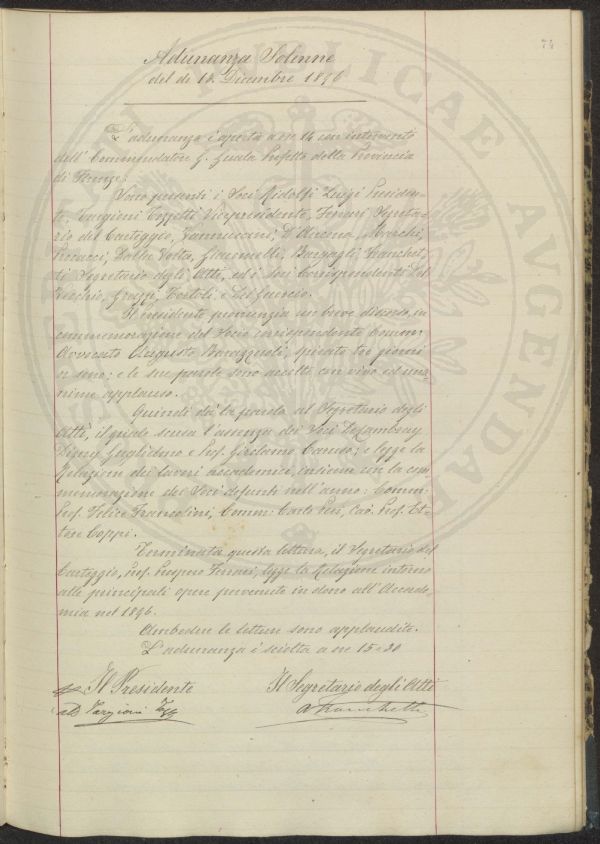 74
Adunanza Solenne
del dì 18. Dicembre 1896
L'adunanza è aperta a ore 14 con intervento
dell' Commendatore G. Guala Prefetto della Provincia
di Firenze.
Sono presenti i Soci Ridolfi Luigi Presiden-
te, Targioni Tozzetti Vicepresidente, Ferrari Segreta-
rio del Carteggio, Vannuccini, D'Ancona, Marchi,
Pecucci, Dalla Volta, Giacomelli, Bargagli, Franchet-
ti Segretario degli Atti, ed i Soci Corrispondenti Del
Vecchio, Grazzi, Bertoli, e Del Guercio.
Il Presidente pronunzia un breve discorso, in
commemorazione del Socio corrispondente Comm:
Avvocato Augusto Barazzuoli, spirato tre giorni
or sono; e le sue parole sono accolte con vivo ed una-
nime applauso.
Quindi dà la parola al Segretario degli
Atti, il quale scusa l'assenza dei Soci
Guglielmo e Prof. Girolamo Caruso; e legge la
Relazione dei lavori accademici, insieme con la com
memorazione dei Soci defunti nell'anno: Comm:
Prof. Felice Francolini, Comm: Carlo Peri, Cav. Prof. Et-
tore Coppi.
Terminata questa lettura, il Segretario del
Carteggio, Prof. Prospero Ferrari, legge la Relazione intorno
alle principali opere pervenute in dono all'Accade-
mia nel 1896.
Ambedue le letture sono applaudite.
L'adunanza è sciolta a ore 15 e 20
Il Presidente
Il Segretario degli Atti
Ad Targioni Tozz
A Franchetti
PUBLICAE
AUGENDAE